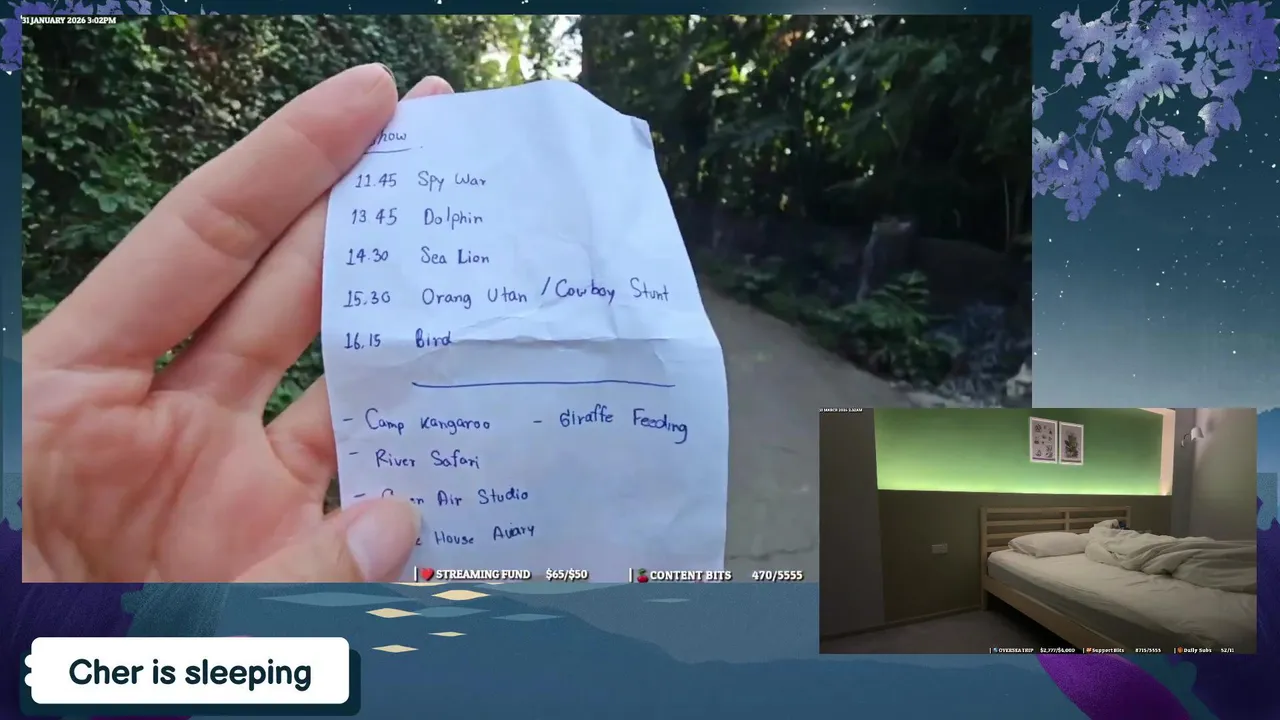 31 JANUARY 2026 3:02PM
Show
11.45 Spy War
13 45 Dolphin
14.30 Sea Lion
15.30 Orang Utan / Cowboy Stunt
16.15 Bird
- Camp Kangaroo - Giraffe Feeding
- River Safari
- Air Studio
House Aviary
STREAMING FUND $65/$50
CONTENT BITS 470/5555
31 MARCH 2026
OVERSEA TRIP $2,777/$4,000
Support Bits 8715/5555
Daily Subs 52/11
Cher is sleeping